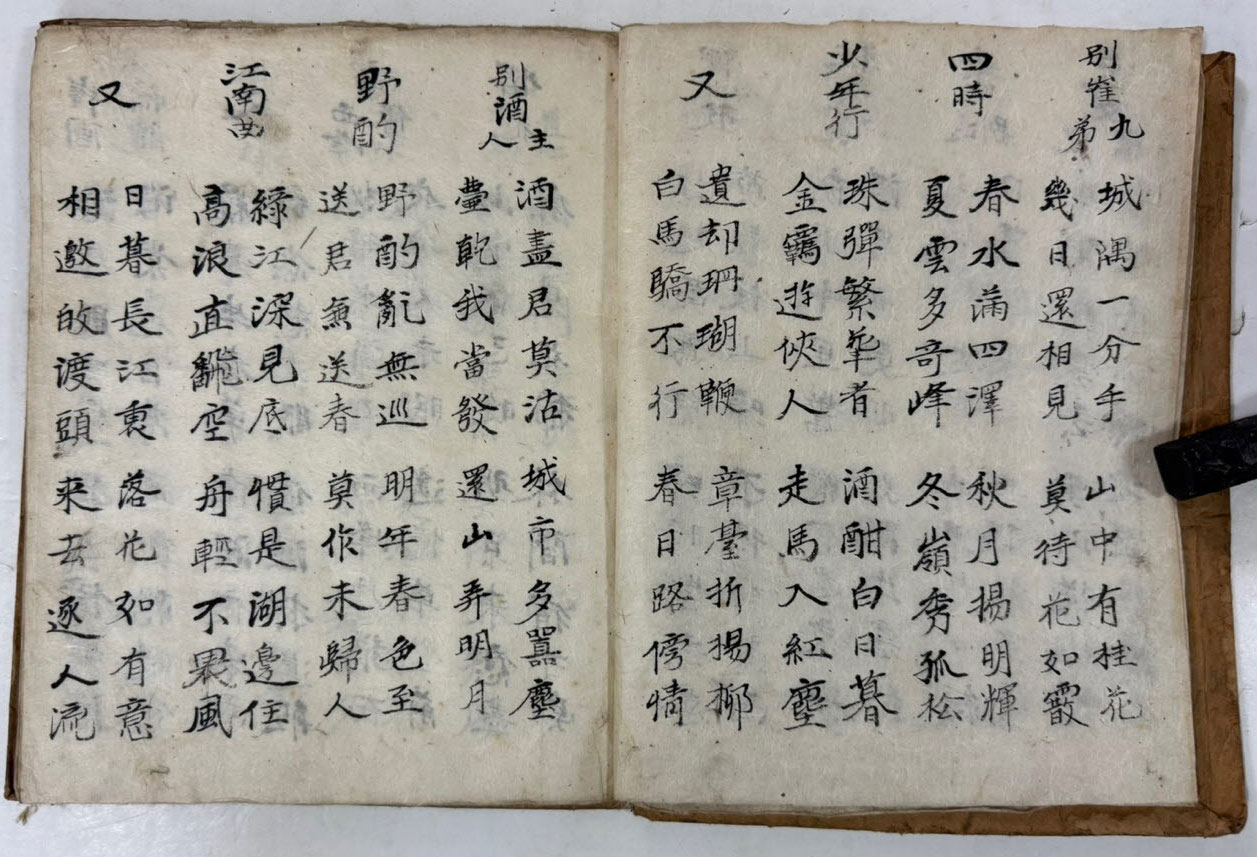 別崔九弟
城隅一分手 山中有桂花
幾日還相見 莫待花如霰
四時
春水滿四澤 秋月揚明輝
夏雲多竒峰 冬嶺秀孤松
少年行
珠彈繁華者 酒酣白日暮
金羈遊俠人 走馬入紅塵
又
遺却珊瑚鞭 章臺折揚柳
白馬驕不行 春日路傍情
別酒主人
酒盡君莫沽 城市多囂塵
壷乾我當發 還山弄明月
野酌
野酌亂無巡 明年春色至
送君兼送春 莫作未歸人
江南曲
綠江深見底 慣是湖邊住
高浪直飜空 舟輕不畏風
又
日暮長江裏 落花如有意
相邀敀渡頭 来去逐人流